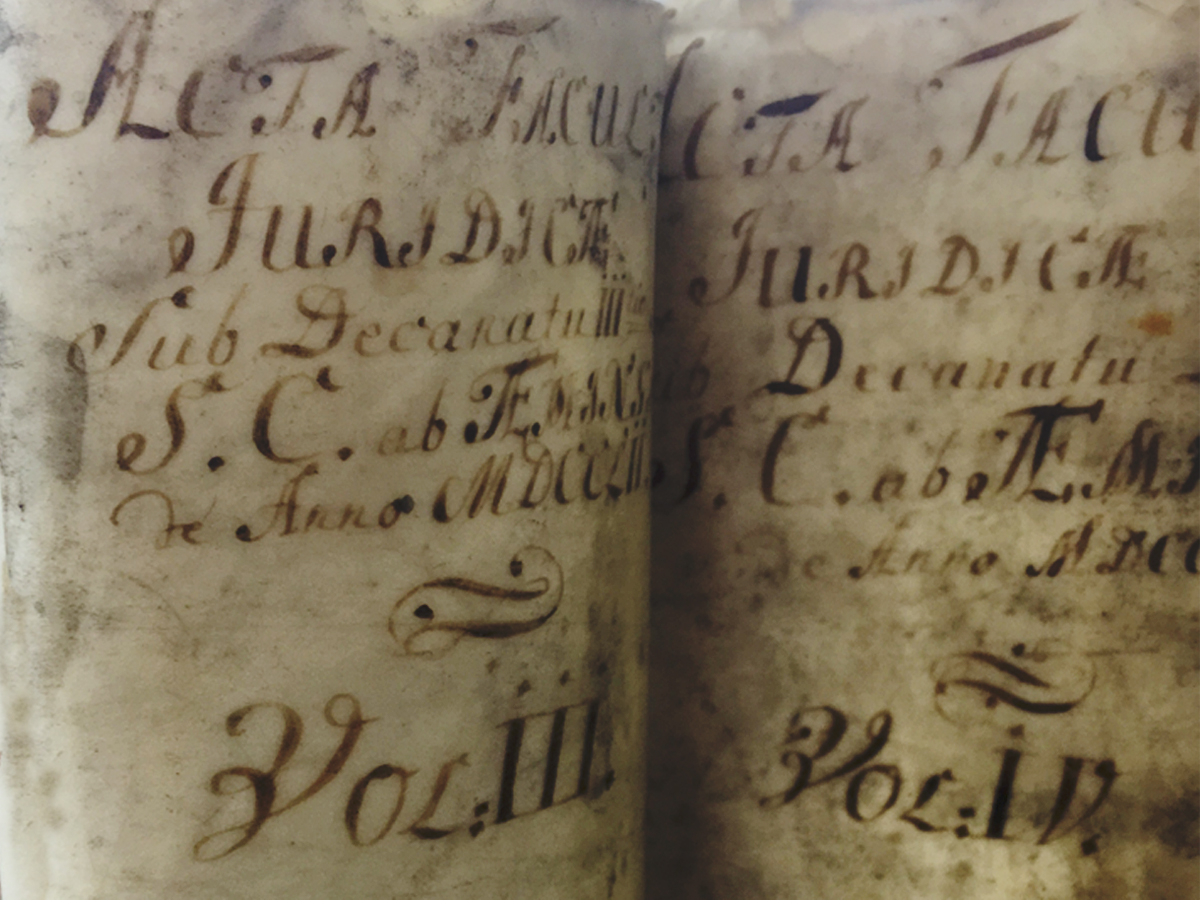 ACTA FACUL
JURIDICÆ
Sub Decanatu III
S. C. ab ÆMINGA
de Anno MDCCLII
VOL: III.
ACTA FACU
JURIDICÆ
Sub Decanatu
S. C. ab ÆMI
de Anno MDCC
VOL: IV.